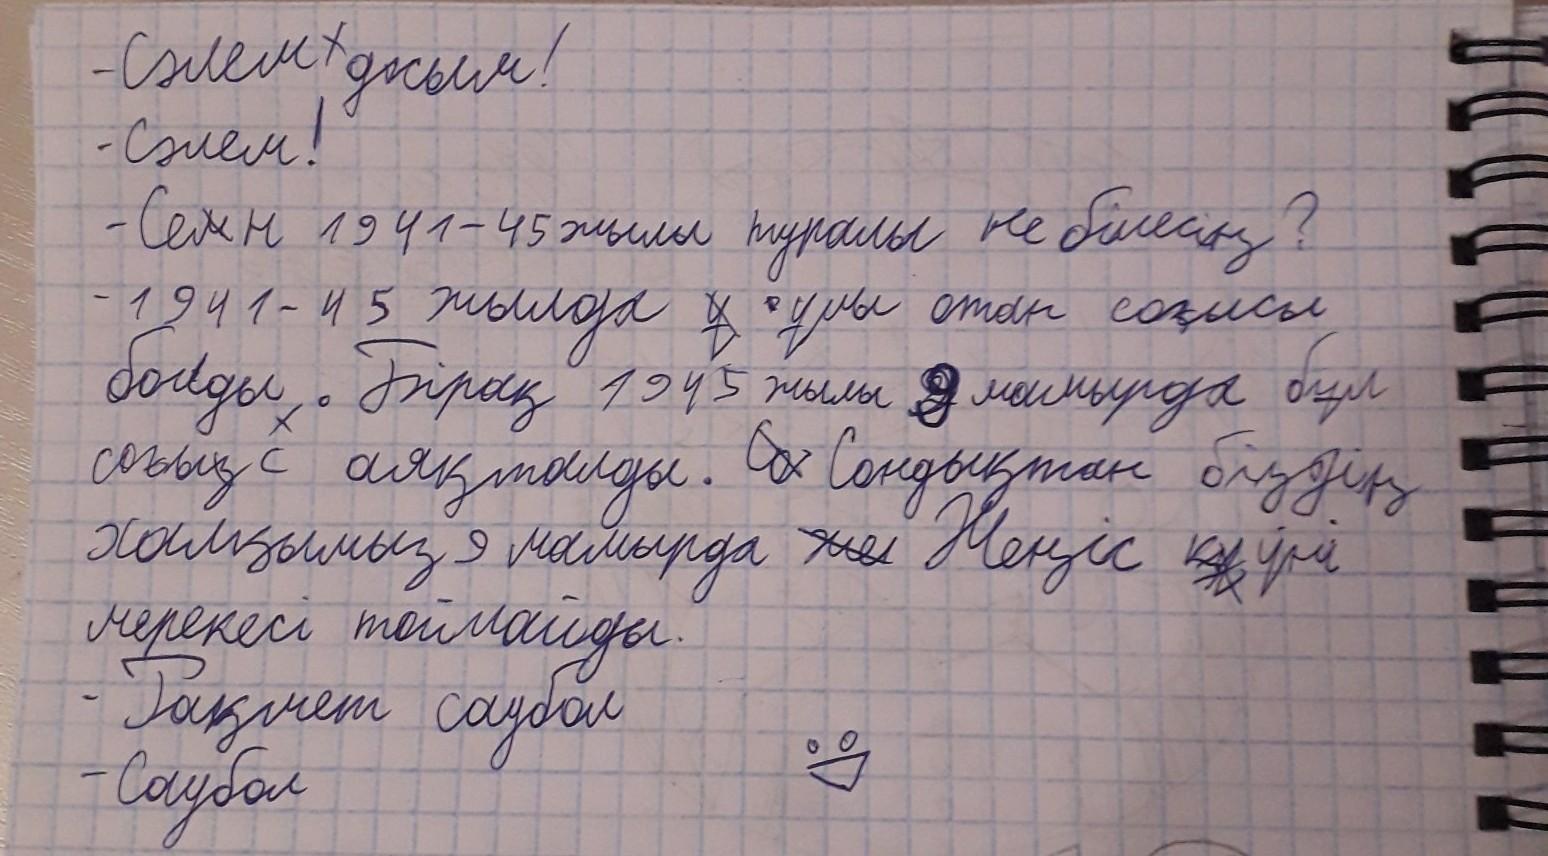 - Сәлем досым!
- Сәлем!
- Сен 1941-45 жылы туралы не білесің?
- 1941-45 жылда ұлы отан соғысы
болды. Бірақ 1945 жылы 9 мамырда бұл
соғыс аяқталды. Сондықтан біздің
халқымыз 9 мамырда Жеңіс күні
мерекесі тоймайды.
- Рақмет саубол
- Саубол